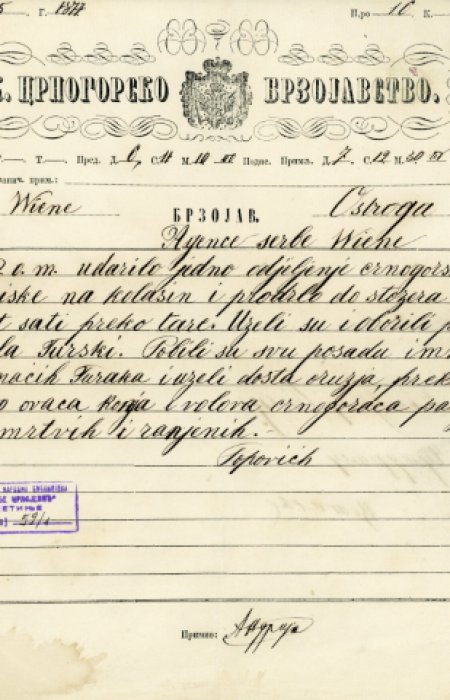 5 Г. 1877 П.ро 10 К.
К. ЦРНОГОРСКО БРЗОЈАВСТВО.
Т. Пред. Д. 6 С. 11 М. 10 Поднс. Примљ. Д. 7 С. 12 М. 30
прим.:
Wiene БРЗОЈАВ. Ostroga
Agence serbe Wiene
o. m. udarilo jedno odjeljenje crnogors
iske na kolašin i prodrlo do stožera
t sati preko tare. Uzeli su i oborili p
la Turski. Pobili su svu posadu i m
maćih Turaka i uzeli dosta oruzja, prek
o ovaca konja i volova crnogoraca pa
mrtvih i ranjenih.
Popovich
НАРОДНА БИБЛИОТЕКА
ЦРНОЈЕВИЋ
ЕТИЊЕ
59/1
Примио: